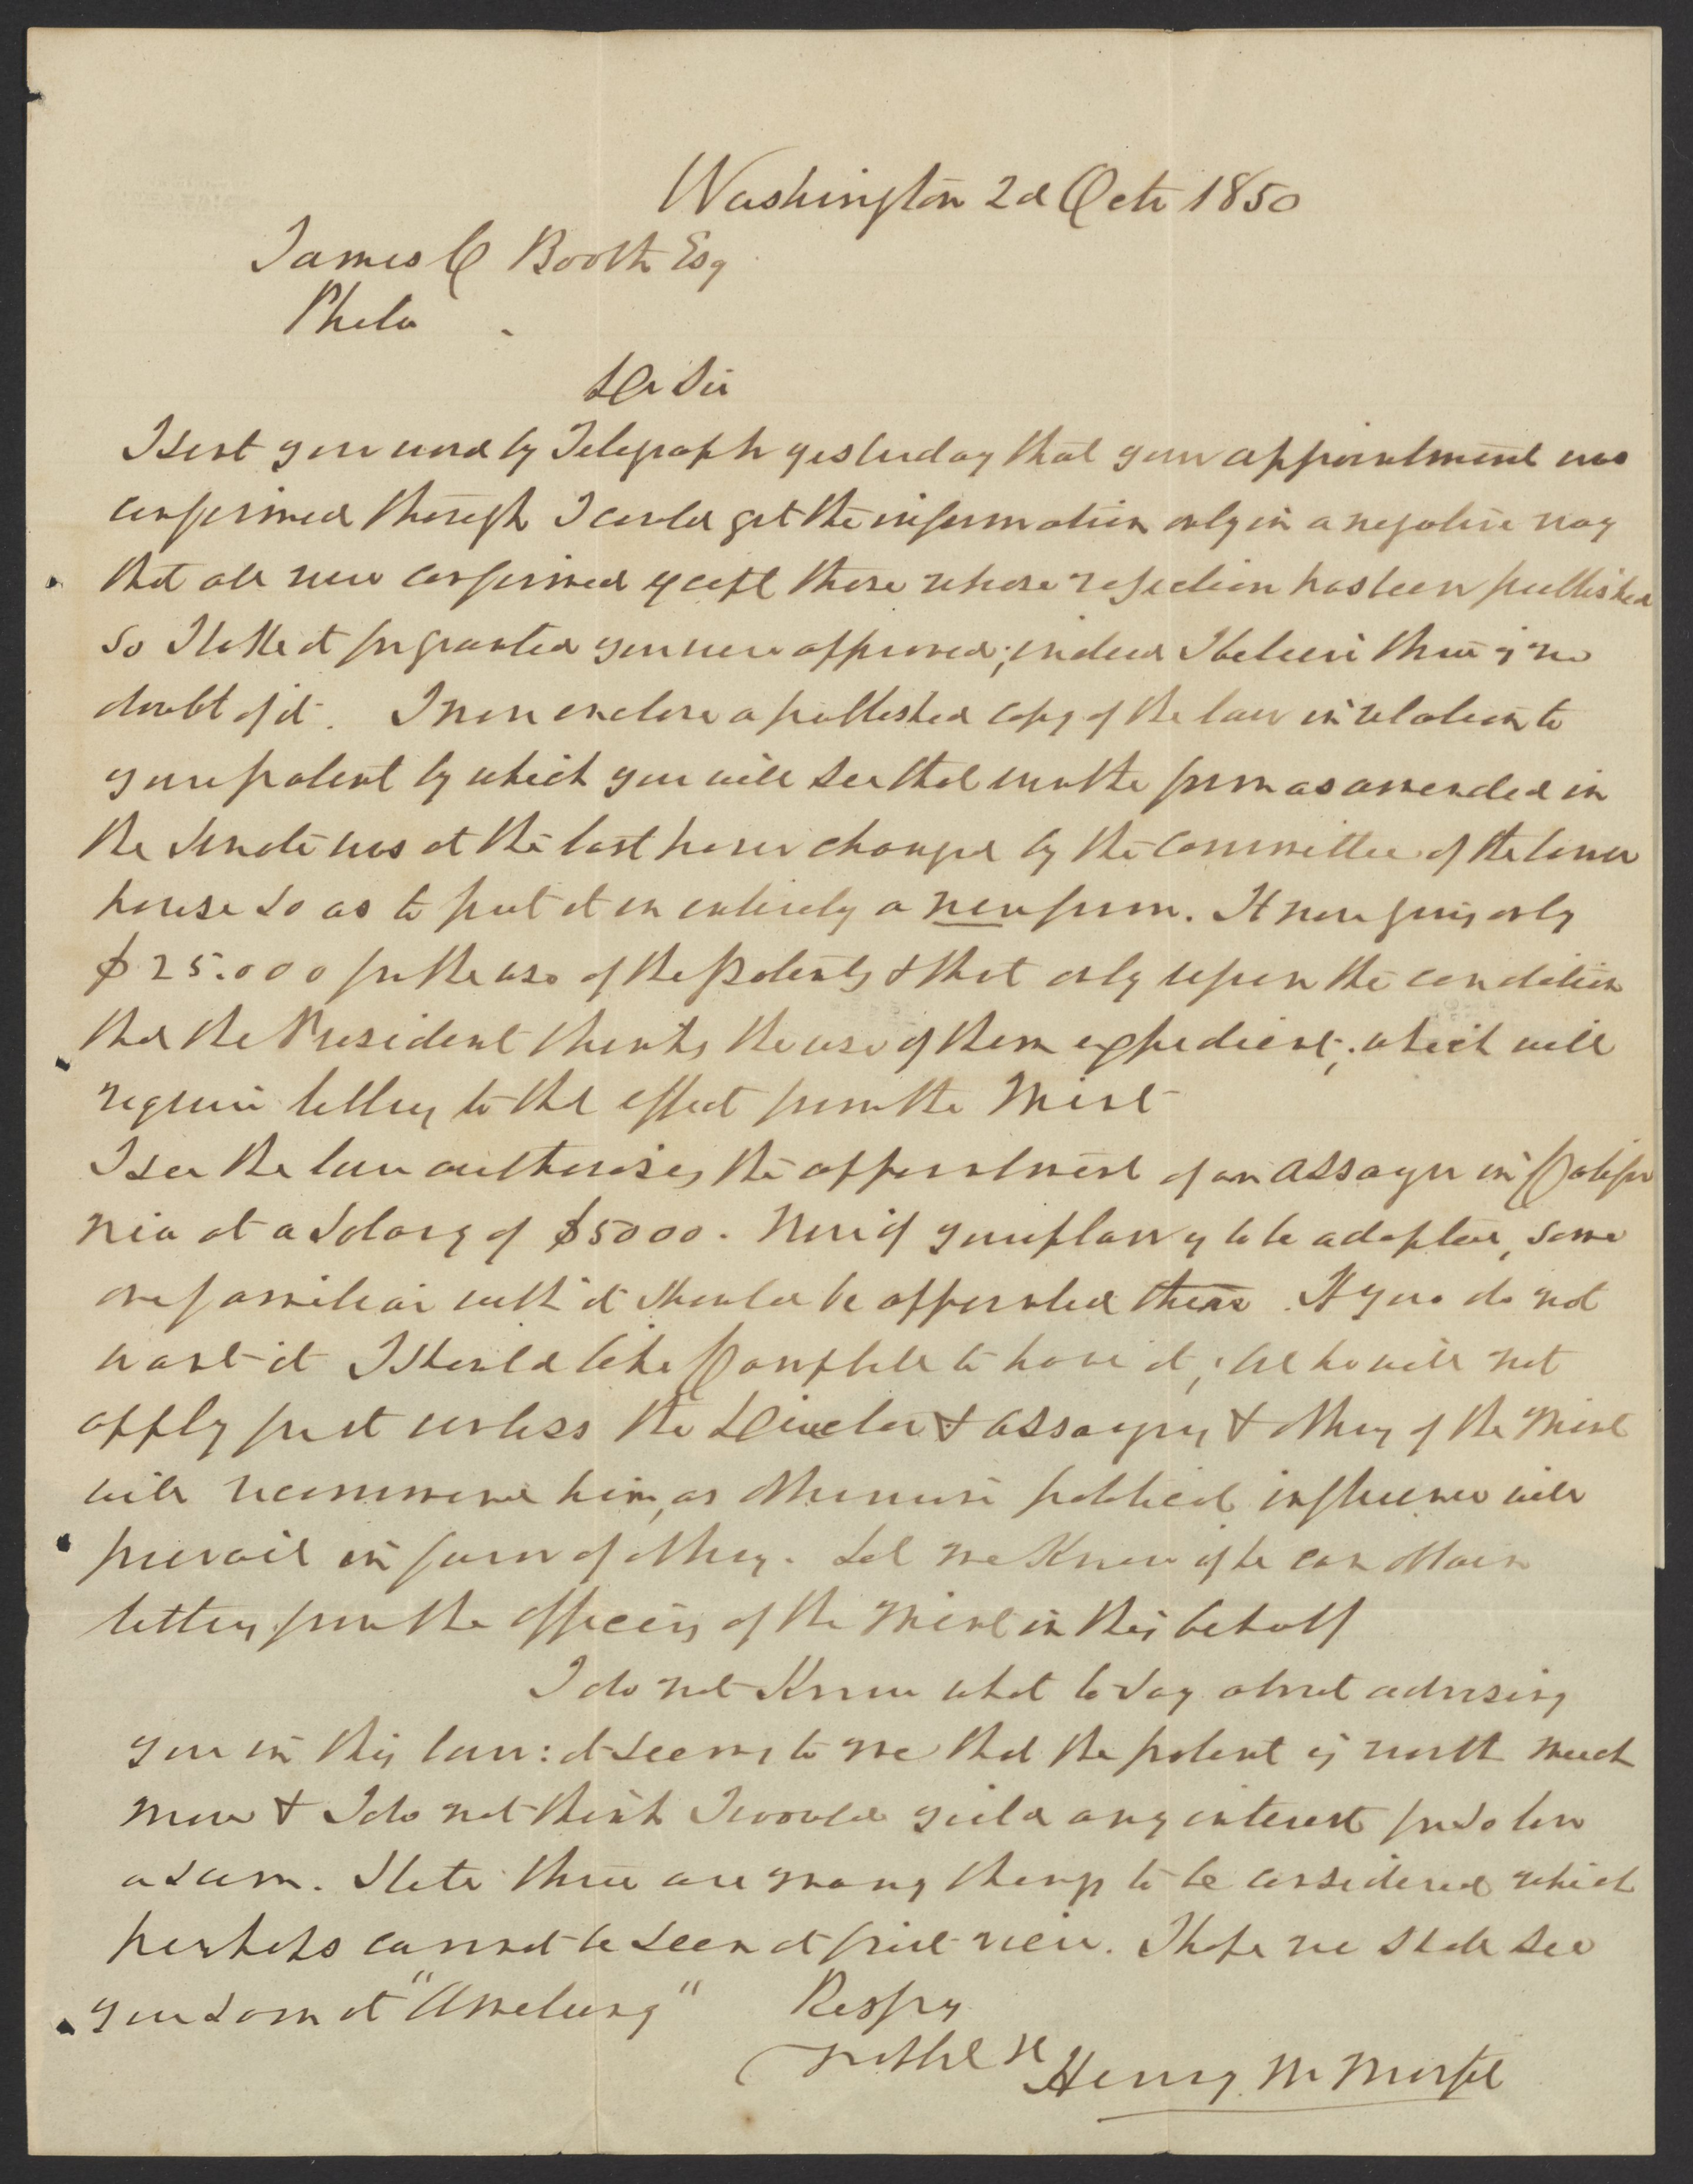 Washington 2d Octr 1850
James C Booth Esq
Phila
Dr Sir
I sent you word by Telegraph yesterday that your appointment was
confirmed though I could get the information only in a negative way
that all were confirmed except those whose rejection has been published
So I take it for granted you were approved; indeed I believe there is no
doubt of it. I now enclose a published copy of the law in relation to
your patent by which you will see that even the form as amended in
the Senate was at the last hour changed by the Committee of the lower
house so as to put it in entirely a new form. It now gives only
$25.000 for the use of the patents & that only upon the condition
that the President thinks the use of them expedient; which will
require letters to that effect from the Mint
I see the law authorises the appointment of an assayer in Califor
nia at a Salary of $5000. Now if your plan is to be adopted, some
one familiar with it should be appointed there. If you do not
want it I should like Campbell to have it; but he will not
apply for it unless the Director & assayers & others of the Mint
will recommend him, as otherwise political influence will
prevail in favor of others. Let me Know if he can obtain
letters from the officers of the Mint in this behalf
I do not Know what to say about advising
you in this law: it seems to me that the patent is worth much
more & I do not think I would yield any interest for so low
a sum. Still there are many things to be considered which
perhaps cannot be seen at first view. I hope we shall see
you soon at "Amelung" Respy
Henry M Morfit